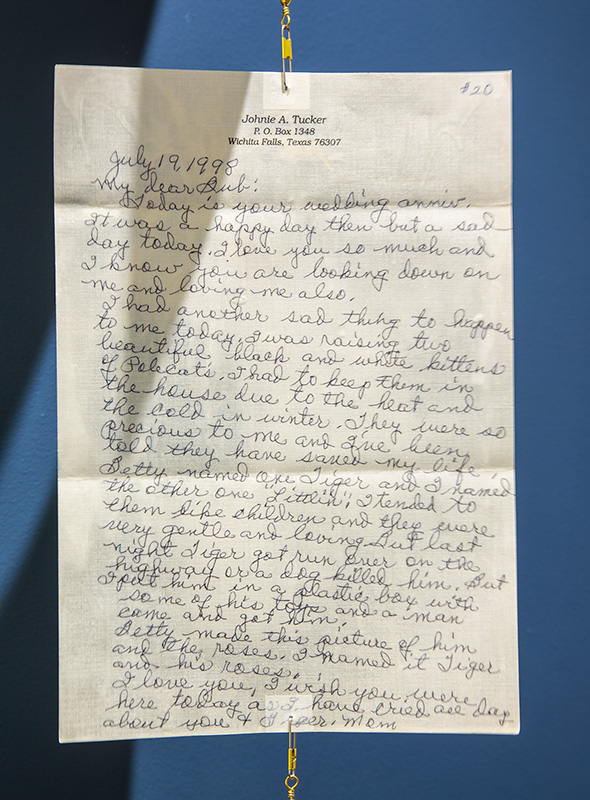 #20
Johnie A. Tucker
P. O. Box 1348
Wichita Falls, Texas 76307
July 19, 1998
My dear Bub:
Today is your wedding anniv.
It was a happy day then but a sad
day today. I love you so much and
I know you are looking down on
me and loving me also.
I had another sad thing to happen
to me today. I was raising two
beautiful black and white kittens
of Polecats. I had to keep them in
the house due to the heat and
the cold in winter. They were so
precious to me and I've been
told they have saved my life.
Betty named one Tiger and I named
the other one "Littlin". I tended to
them like children and they were
very gentle and loving. But last
night Tiger got run over on the
highway or a dog killed him. But
I put him in a plastic box with
some of his toys and a man
came and got him.
Betty made this picture of him
and the roses. I named it Tiger
and his roses.
I love you, I wish you were
here today as I have cried all day
about you & Tiger. Mom